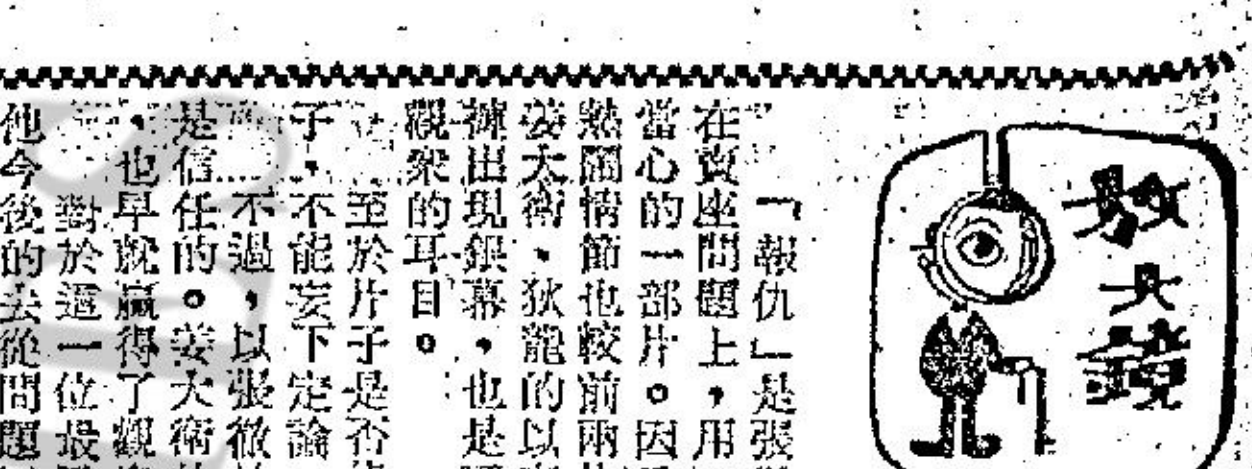 放大鏡
「報仇」是張
在賣座問題上，用
當心的一部片。因
熱鬧情節也較前兩
姜大衛、狄龍的以
褲出現銀幕，也是
觀衆的耳目。
至於片子是否
子，不能妄下定論
不過，以張徹
是信任的。姜大衛
，也早就贏得了觀
對於這一位最
他今後的去從問題